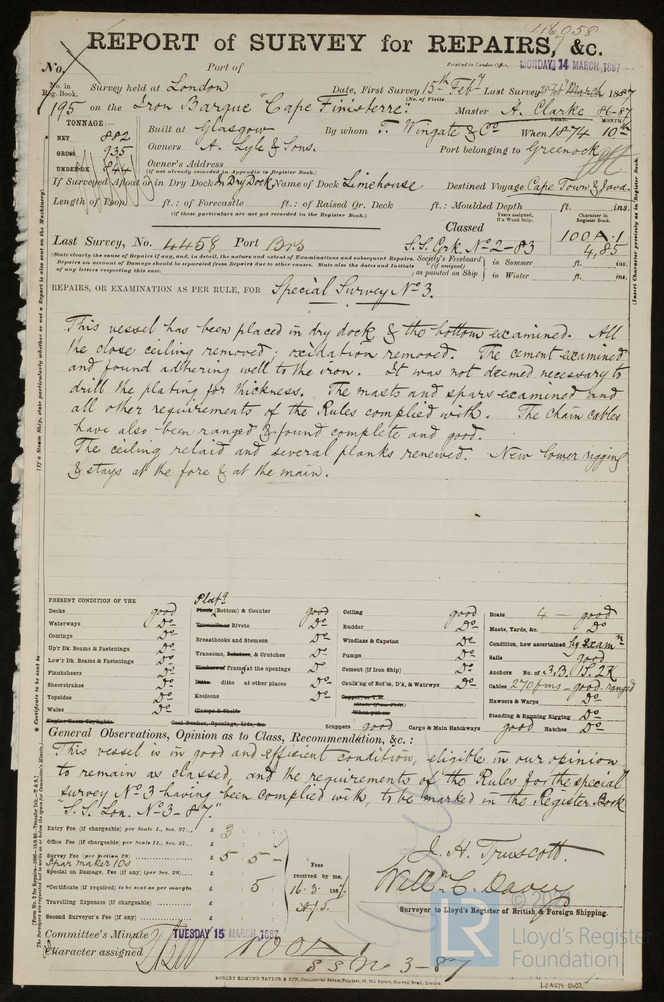 116,058
REPORT of SURVEY for REPAIRS, &c.
No. Port of Received in London Office, MONDAY 14 MARCH 1887
No. in Reg. Book. Survey held at London Date, First Survey 15th Feby Last Survey 1887
195 on the Iron Barque "Cape Finisterre" (No. of Visits Master A. Clarke 86-87
TONNAGE:— YEAR. MONTH.
NET 882 Built at Glasgow By whom T. Wingate & Co When 1874 10th
GROSS 935 Owners A. Lyle & Sons. Port belonging to Greenock
UNDER DK 844 Owners' Address
(If not already recorded in Appendix to Register Book.)
If Surveyed Afloat or in Dry Dock In Dry Dock Name of Dock Limehouse Destined Voyage Cape Town & Java.
Length of Poop ft.: of Forecastle ft.: of Raised Qr. Deck ft.: Moulded Depth ft. ins.
(If these particulars are not yet recorded in the Register Book.)
Classed Years assigned, if a Wood Ship. Character in Register Book.
100 A.1
Last Survey, No. 4458 Port Brs S.S. Grk. No 2-83 4,85
(State clearly the cause of Repairs if any, and, in detail, the nature and extent of Examinations and subsequent Repairs.
Repairs on account of Damage should be separated from Repairs due to other causes. State also the dates and Initials
of any letters respecting this case.
Society's Freeboard (if assigned) as painted on Ship in Summer ft. ins.
in Winter ft. ins.
REPAIRS, OR EXAMINATION AS PER RULE, FOR Special Survey No 3.
This vessel has been placed in dry dock & the bottom examined. All
the close ceiling removed; oxidation removed. The cement examined
and found adhering well to the iron. It was not deemed necessary to
drill the plating for thickness. The masts and spars examined and
all other requirements of the Rules complied with. The chain cables
have also been ranged & found complete and good.
The ceiling relaid and several planks renewed. New lower rigging
& stays at the fore & at the main.
PRESENT CONDITION OF THE
Decks good
Waterways Do
Comings Do
Up'r Dk Beams & Fastenings Do
Low'r Dk. Beams & Fastenings Do
Planksheers Do
Sheerstrakes Do
Topsides Do
Wales Do
Engine Room Skylights
Platg
Plank (Bottom) & Counter good
Treenails or Rivets Do
Breasthooks and Stemson Do
Transoms, Pointers, & Crutches Do
Timbers of Frame at the openings Do
Ditto ditto at other places Do
Keelsons Do
Clamps & Shelfs
Coal Bunker, Openings, Lids, &c.
Ceiling good
Rudder Do
Windlass & Capstan Do
Pumps Do
Cement (if Iron Ship) Do
Caulk'ng of Bot'm, D'k, & Watrwys Do
Scuppers good Cargo & Main Hatchways good Hatches Do
Boats 4 — good
Masts, Yards, &c. Do
Condition, how ascertained by Examn
Sails good
Anchors No. of 3.B, 1S, 2K
Cables 270 fms — good, ranged
Hawsers & Warps Do
Standing & Running Rigging Do
General Observations, Opinion as to Class, Recommendation, &c. :
This vessel is in good and efficient condition, eligible in our opinion
to remain as classed, and the requirements of the Rules for the special
survey No 3 having been complied with, to be marked in the Register Book
"S.S. Lon. No 3-87".
Entry Fee (if chargeable) per Scale I., Sec. 27... £ 3
Office Fee (if chargeable) per Scale II., Sec. 27... £
Survey Fee (per Section 28) £ 5 5 —
Spar maker 10s
Special on Damage Fee (if any) (per Sec. 28) £
*Certificate (if required) to be sent as per margin £ 5
Travelling Expenses (if chargeable) £
Second Surveyor's Fee (if any) £
Fees received by me,
16.3.1887
J. H. Truscott.
Willm C. Davey
Surveyor to Lloyd's Register of British & Foreign Shipping.
Committee's Minute TUESDAY 15 MARCH 1887
Character assigned 100 A 1
S S No 3-87
ROBERT EDMUND TAYLOR & SON, Commercial Steam Printers, 19, Old Street, Goswell Road, London.
LR
Lloyd's Register
Foundation